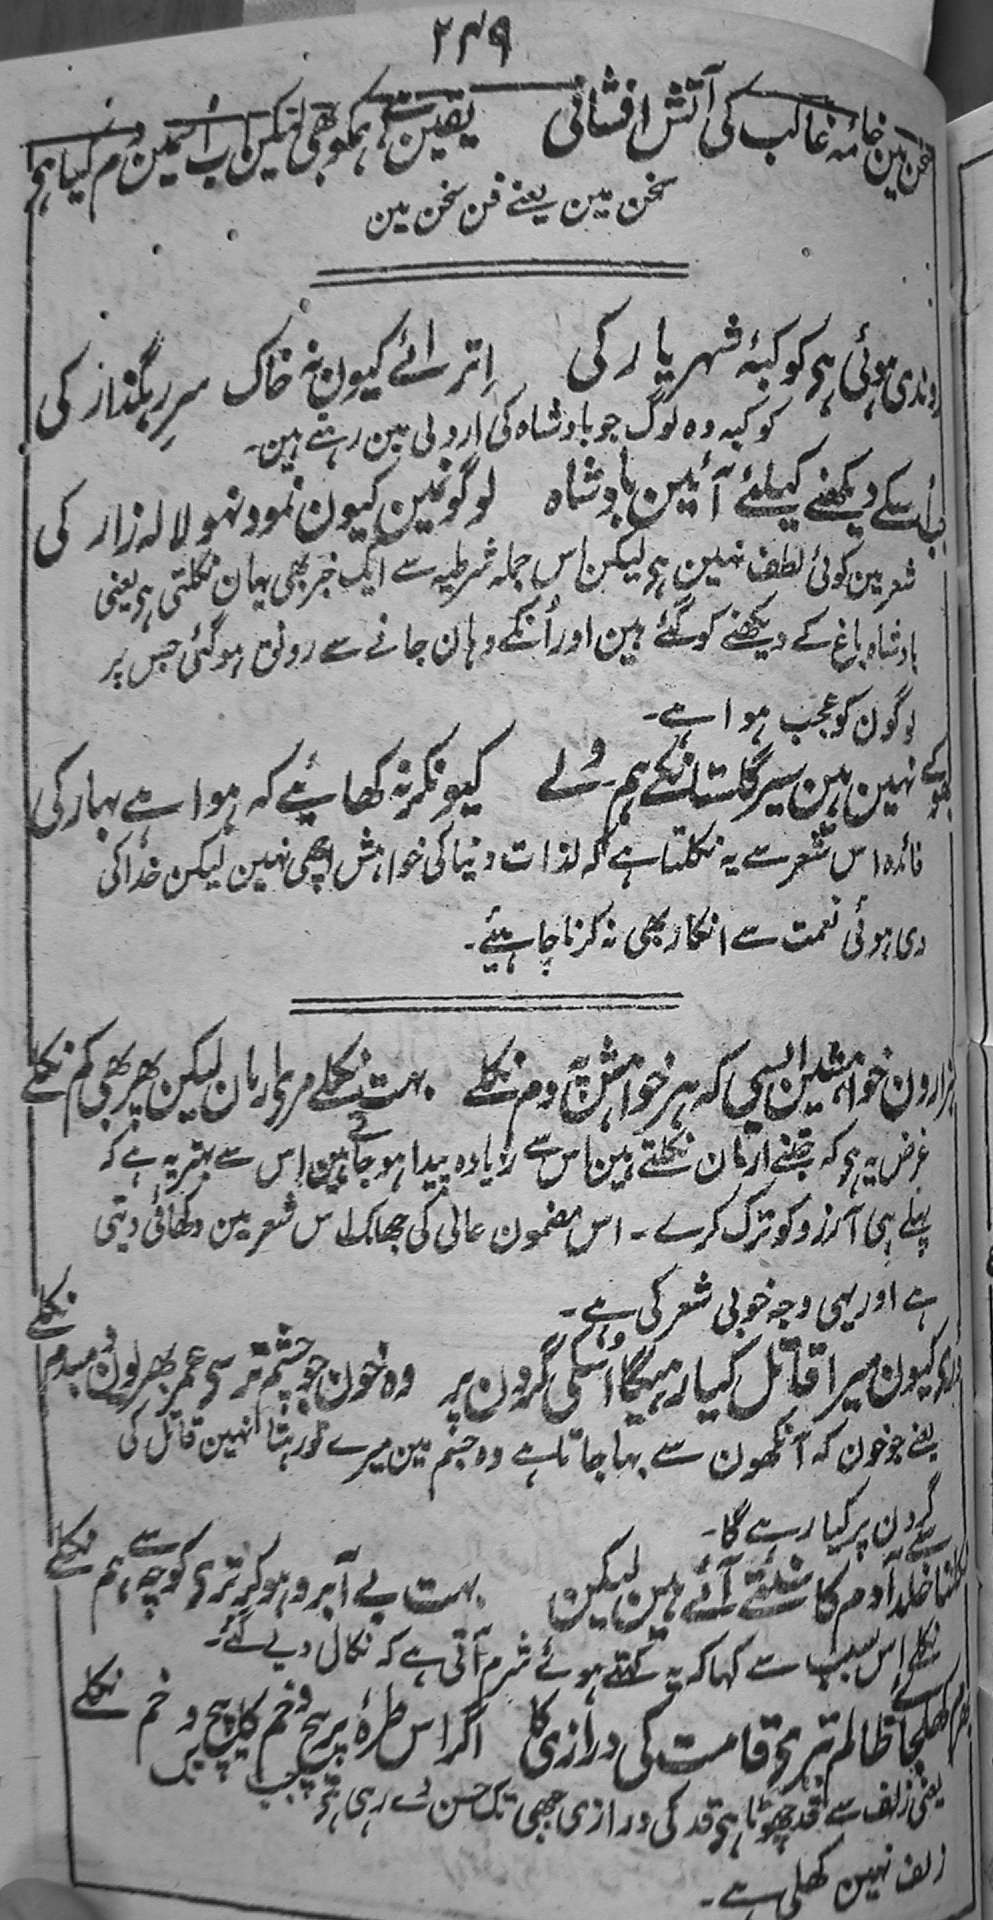 ۲۴۹
فن مین خامۂ غالب کی آتش افشانی یقین ہے ہمکو بھی لیکن اب اُسمین دم کیا ہے
سخن مین یعنے فن سخن مین
روندی ہوئی ہے کوکبۂ شہریار کی اِترائے کیون نہ خاک سرِ رہگذار کی
کوکبہ وہ لوگ جو بادشاہ کی اردلی مین رہتے ہین۔
جب اُسکے دیکھنے کیلئے آئین بادشاہ لوگونمین کیون نمود نہو لالہ زار کی
شعر مین کوئی لطف نہین ہے لیکن اس جملہ شرطیہ سے ایک خبر بھی یہان نکلتی ہے یعنی
بادشاہ باغ کے دیکھنے کو گئے ہین اور اُنکے وہان جانے سے رونق ہو گئی جس پر
لوگون کو عجب ہوا ہے۔
بھوکے نہین ہین سیر گلستانکے ہم ولے کیونکر نہ کھائیے کہ ہوا ہے بہار کی
فائدہ اس شعر سے یہ نکلتا ہے کہ لذات دنیا کی خواہش اچھی نہین لیکن خدا کی
دی ہوئی نعمت سے انکار بھی نہ کرنا چاہئیے۔
ہزارون خواہشین ایسی کہ ہر خواہش پہ دم نکلے بہت نکلے مری ارمان لیکن پھر بھی کم نکلے
غرض یہ ہے کہ جتنے ارمان نکلتے ہین اس سے زیادہ پیدا ہو جاتے ہین اِس سے بہتر یہ ہے کہ
پہلے ہی آرزو کو ترک کرے ۔ اس مضمون عالی کی جھلک اس شعر مین دکھائی دیتی
ہے اور یہی وجہ خوبی شعر کی ہے۔
ڈری کیون میرا قاتل کیا رہیگا اُسکی گردن پر وہ خون جو چشم تر سی عمر بھر یون دمبدم نکلے
یعنے جو خون کہ آنکھون سے بہا جاتا ہے وہ جسم مین میرے تو رہتا نہین قاتل کی
گردن پر کیا رہے گا۔
نکلنا خلد سے آدم کا سنتے آئے ہین لیکن بہت بے آبرو ہو کر تری کوچہ سے ہم نکلے
نکلے اِس سبب سے کہا کہ یہ کہتے ہوئے شرم آتی ہے کہ نکال دیے گئے۔
بھرم کھلجائے ظالم تیرے قامت کی درازی کا اگر اس طرۂ پر پیچ و خم کا پیچ و خم نکلے
یعنی زلف سے قد چھوٹا ہے قد کی درازی جبھی تک حسن دے رہی ہے جب تک
زلف نہین کھلی ہے۔